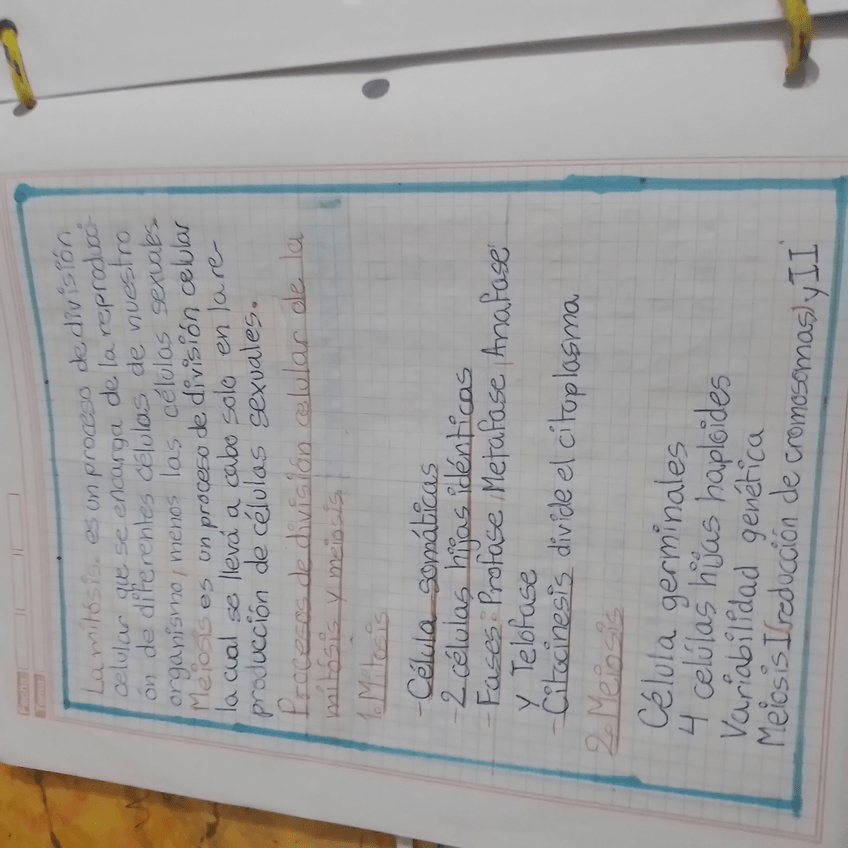 La mitósis. es un proceso de división
celular que se encarga de la reproducci-
ón de diferentes células de nuestro
organismo, menos las células sexuales.
Meiosis es un proceso de división celular
la cual se llevá a cabo solo en la re
producción de células sexuales.
Procesos de división celular de la
mitósis y meiosis
1. Mitosis
-Célula somáticas
-2 células hijas idénticas
-Fases: Profase, Metafase, Anafase
y Telofase
-Citocinesis divide el citoplasma
2. Meiosis
Célula germinales
4 celulas hijas haploides
Variabilidad genética
Meiosis I(reducción de cromosomas) y II